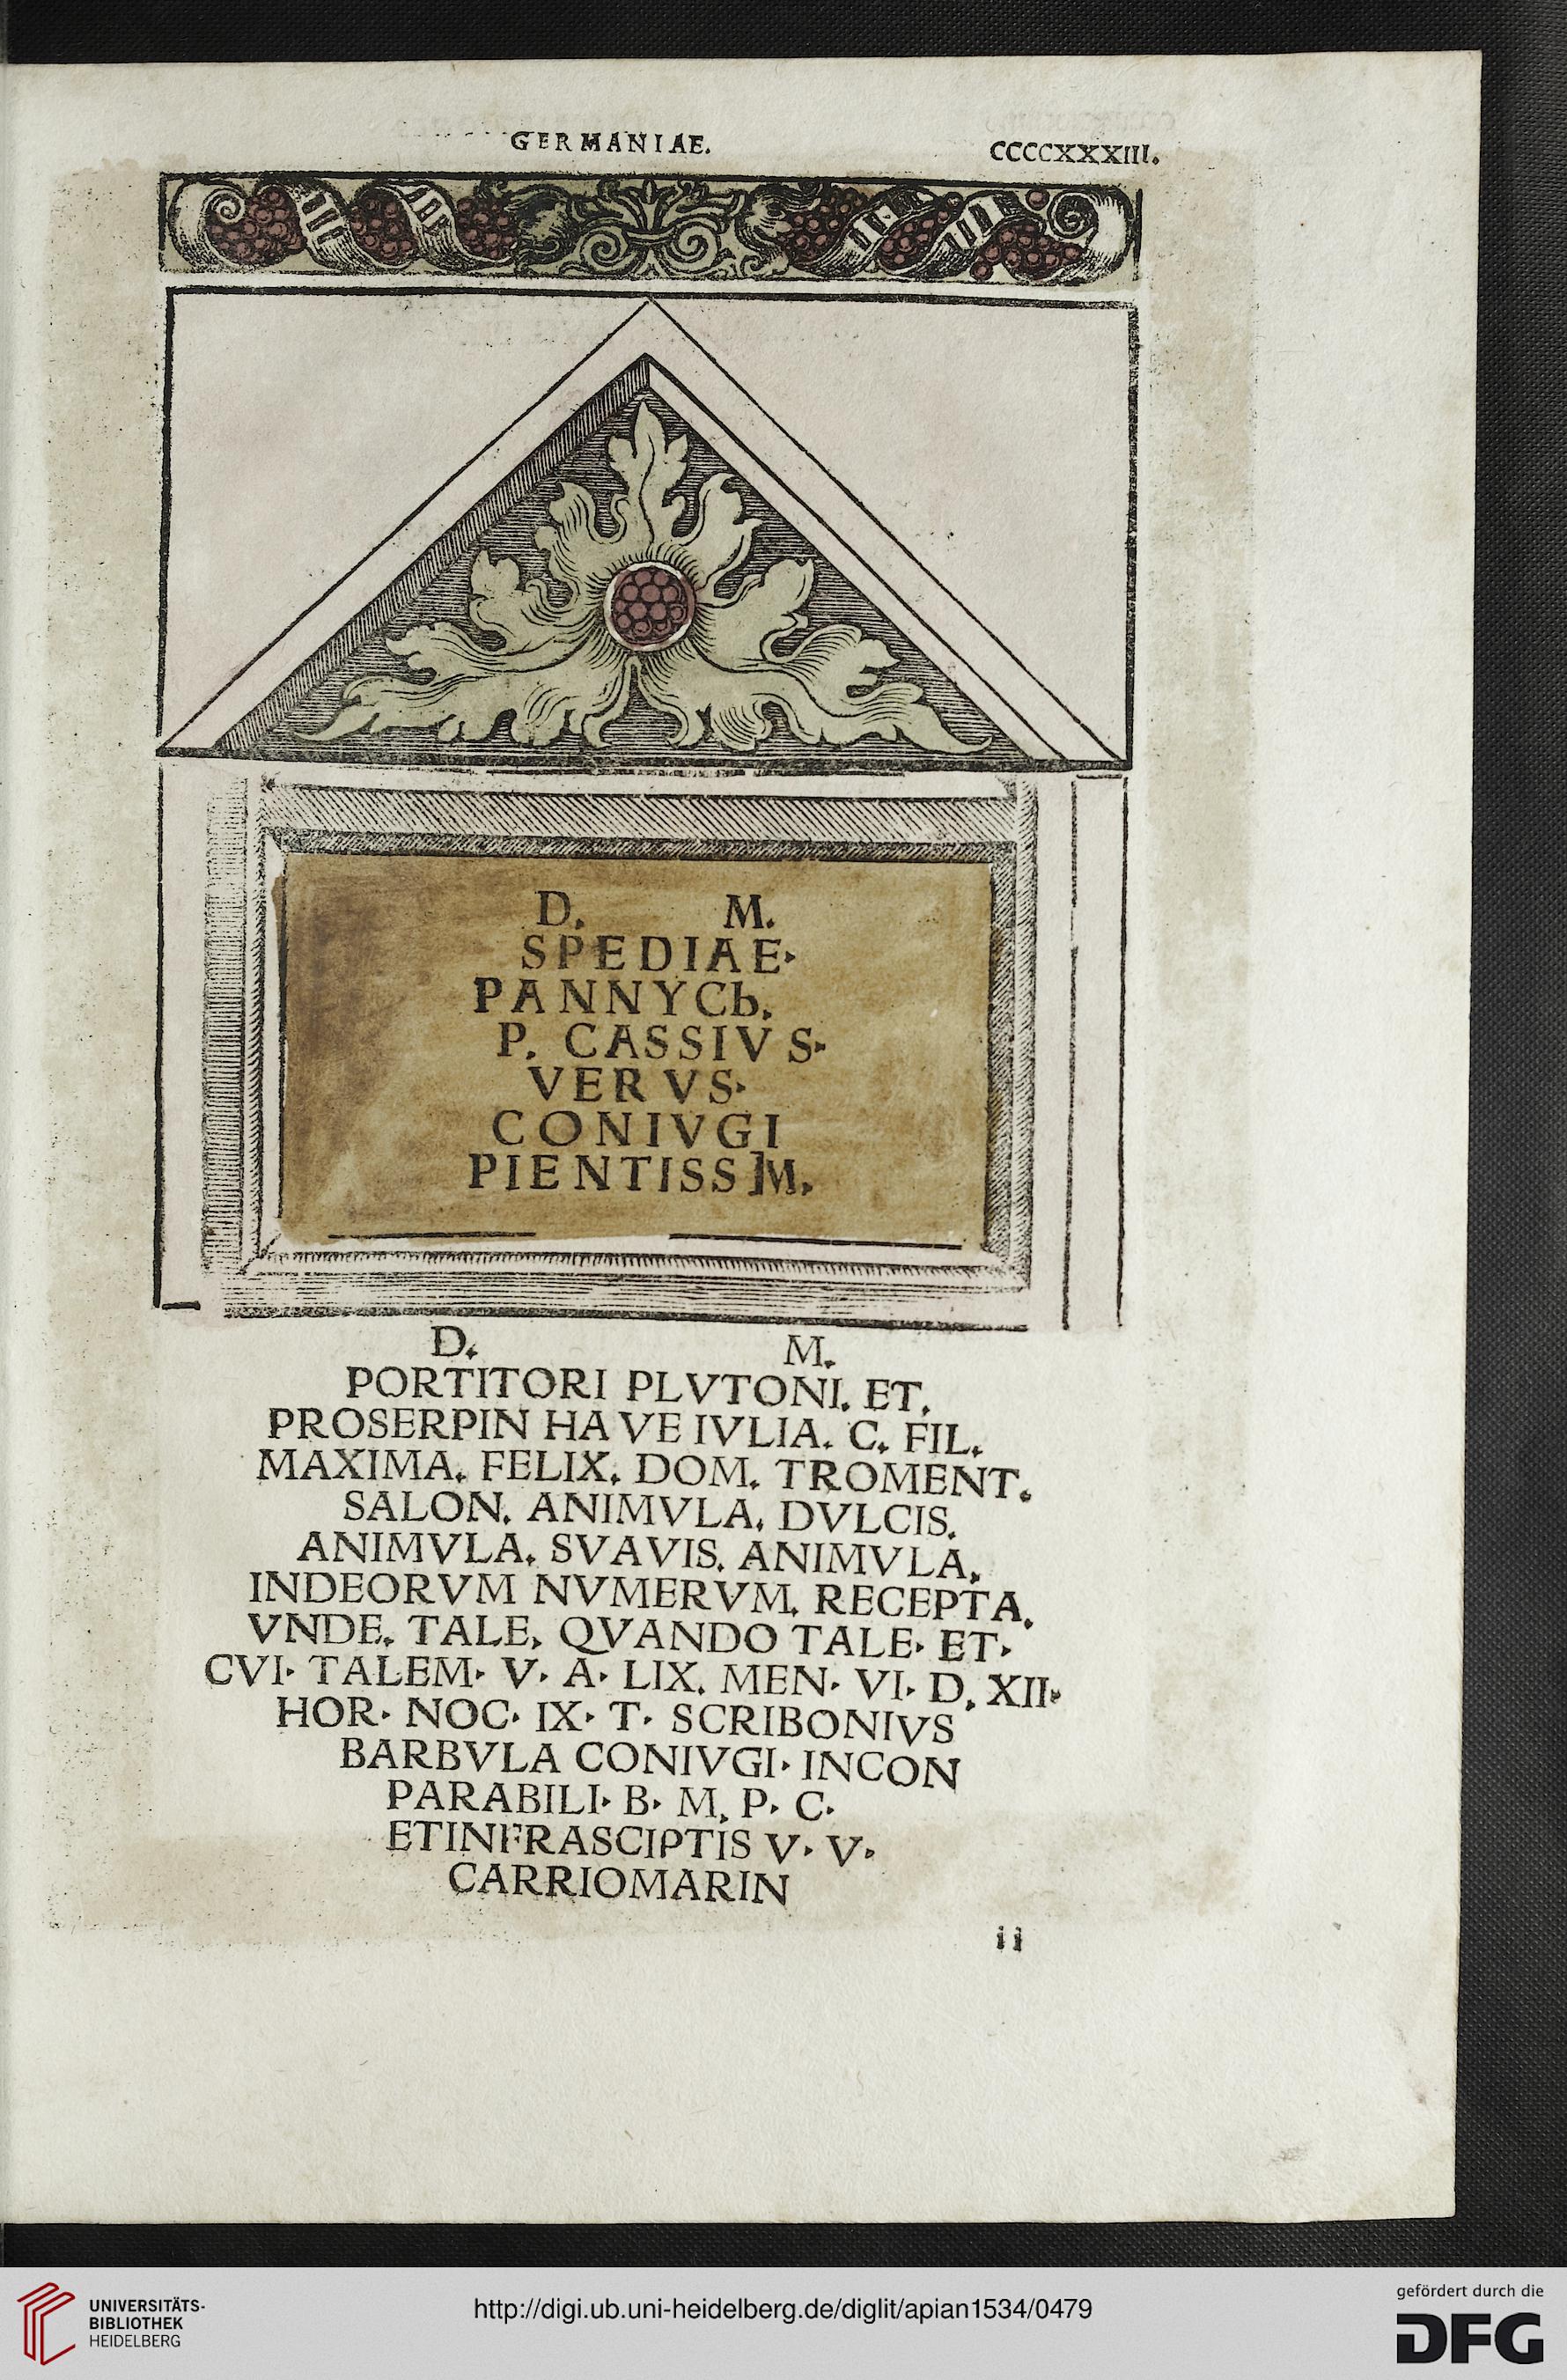 GERMANIAE.
CCCCXXXIII.
D. M.
SPEDIAE·
PANNYCb.
P. CASSIVS·
VERVS·
CONIVGI
PIENTISSIM.
D. M.
PORTITORI PLVTONI. ET.
PROSERPIN HAVE IVLIA. C. FIL.
MAXIMA. FELIX. DOM. TROMENT.
SALON. ANIMVLA. DVLCIS.
ANIMVLA. SVAVIS. ANIMVLA.
INDEORVM NVMERVM. RECEPTA.
VNDE. TALE. QVANDO TALE· ET·
CVI· TALEM· V· A· LIX. MEN· VI· D. XII·
HOR· NOC· IX· T· SCRIBONIVS
BARBVLA CONIVGI· INCON
PARABILI· B· M. P· C·
ETINFRASCIPTIS V· V·
CARRIOMARIN
ii
UNIVERSITÄTS-
BIBLIOTHEK
HEIDELBERG
http://digi.ub.uni-heidelberg.de/diglit/apian1534/0479
gefördert durch die
DFG